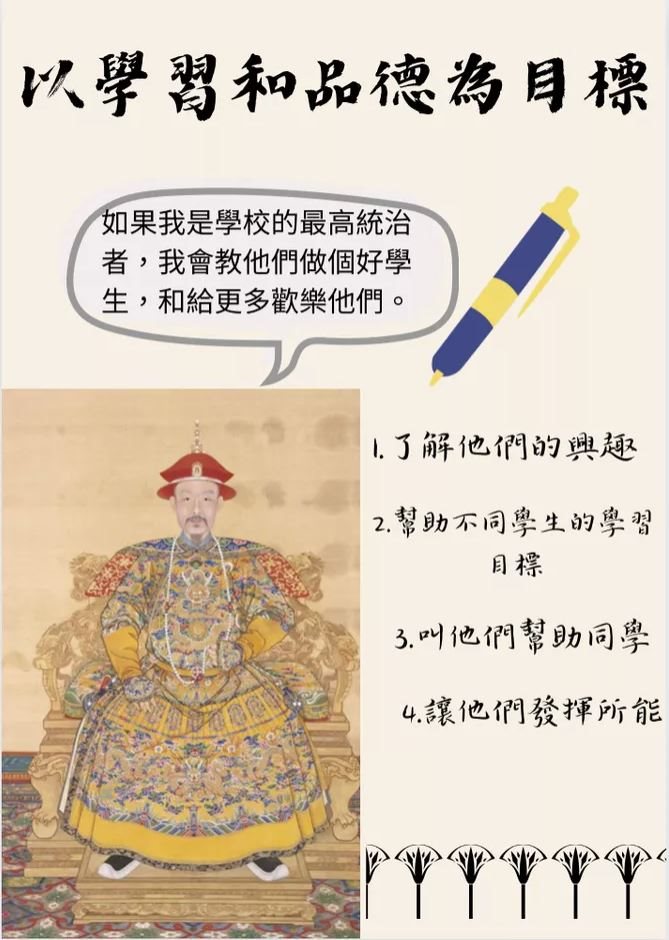 以學習和品德為目標
如果我是學校的最高統治
者，我會教他們做個好學
生，和給更多歡樂他們。
1.了解他們的興趣
2.幫助不同學生的學習
目標
3.叫他們幫助同學
4.讓他們發揮所能